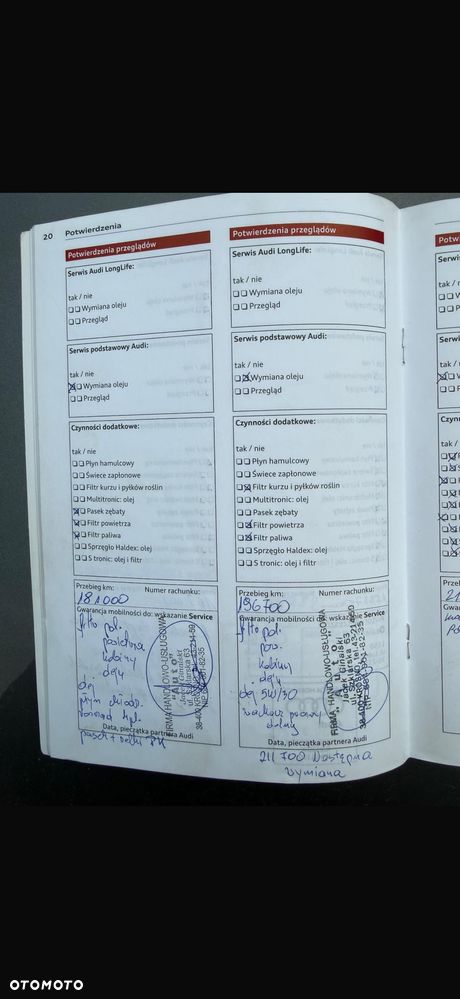 20 Potwierdzenia
Potwierdzenia przeglądów
Serwis Audi LongLife:
tak / nie
Wymiana oleju
Przegląd
Serwis podstawowy Audi:
tak / nie
Wymiana oleju
Przegląd
Czynności dodatkowe:
tak / nie
Płyn hamulcowy
Świece zapłonowe
Filtr kurzu i pyłków roślin
Multitronic: olej
Pasek zębaty
Filtr powietrza
Filtr paliwa
Sprzęgło Haldex: olej
S tronic: olej i filtr
Przebieg km: Numer rachunku:
181000
Gwarancja mobilności do: wskazanie Service
filtr pal.
powietrza
kabiny
olej
FIRMA HANDLOWO-USŁUGOWA
"Auto"
Data, pieczątka partnera Audi
Potwierdzenia przeglądów
Serwis Audi LongLife:
tak / nie
Wymiana oleju
Przegląd
Serwis podstawowy Audi:
tak / nie
Wymiana oleju
Przegląd
Czynności dodatkowe:
tak / nie
Płyn hamulcowy
Świece zapłonowe
Filtr kurzu i pyłków roślin
Multitronic: olej
Pasek zębaty
Filtr powietrza
Filtr paliwa
Sprzęgło Haldex: olej
S tronic: olej i filtr
Przebieg km: Numer rachunku:
196700
Gwarancja mobilności do: wskazanie Service
filtr pal.
pow.
kabiny
olej
olej 5W/30
wachacz prawy
dolny
FIRMA HANDLOWO-USŁUGOWA
"Auto"
Data, pieczątka partnera Audi
211 700 Następna
wymiana
OTOMOTO